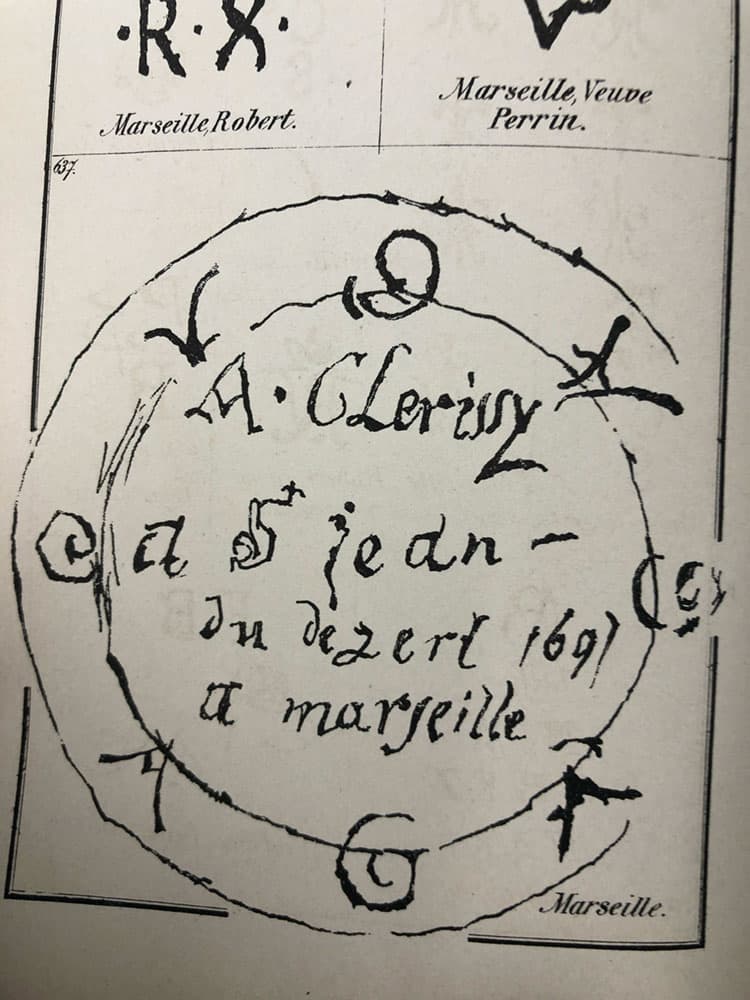 ·R·X·
Marseille, Robert.
Marseille, Veuve
Perrin.
637.
A·CLerissy
a St jean-
du dezert 1697
a marseille
Marseille.